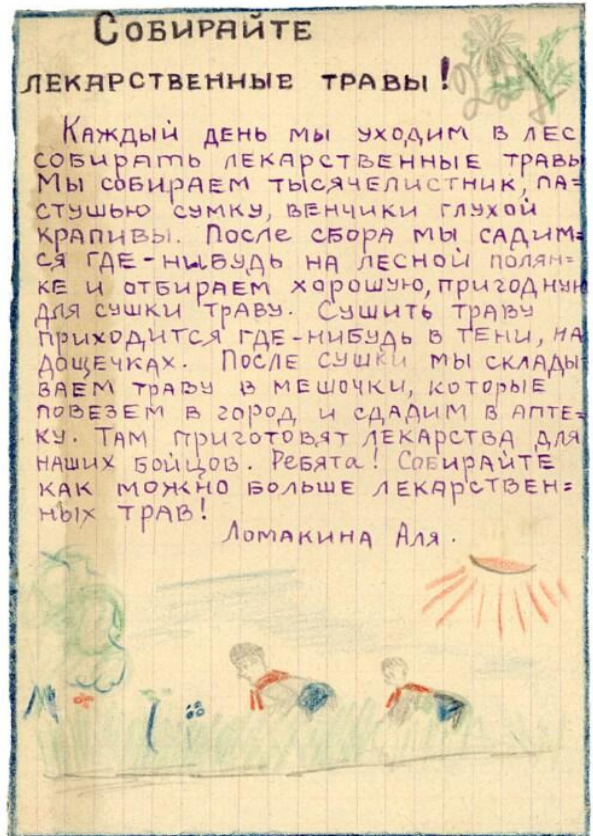 Собирайте
лекарственные травы!
Каждый день мы уходим в лес
собирать лекарственные травы
Мы собираем тысячелистник, па-
стушью сумку, венчики глухой
крапивы. После сбора мы садим=
ся где-нибудь на лесной полян=
ке и отбираем хорошую, пригодную
для сушки траву. Сушить траву
приходится где-нибудь в тени, на
дощечках. После сушки мы склады
ваем траву в мешочки, которые
повезем в город и сдадим в апте-
ку. Там приготовят лекарства для
наших бойцов. Ребята! Собирайте
как можно больше лекарствен=
ных трав!
Ломакина Аля.